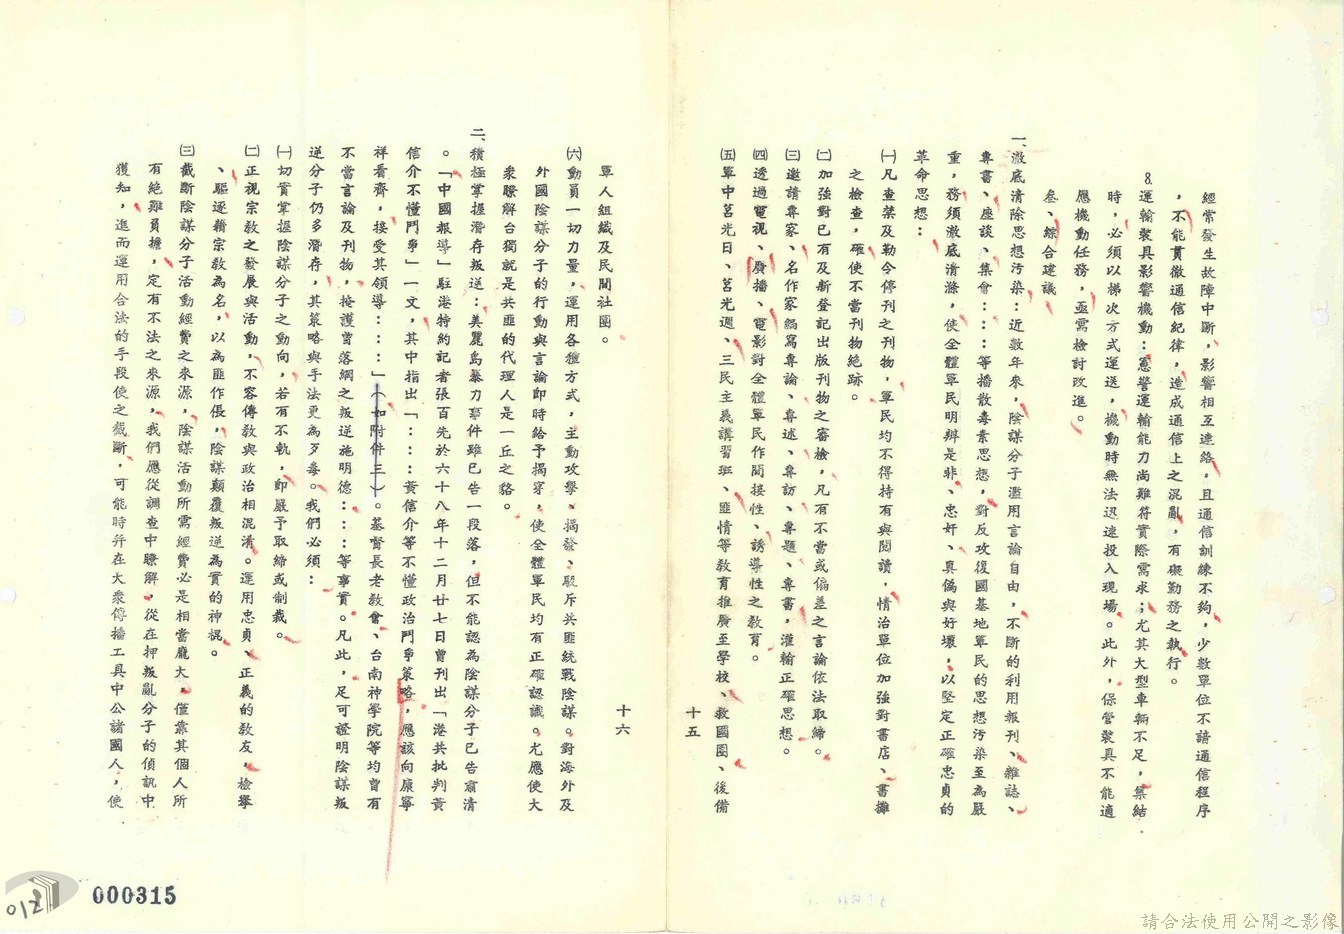 經常發生故障中斷，影響相互連絡，且通信訓練不夠，少數單位不諳通信程序
，不能貫徹通信紀律，造成通信上之混亂，有礙勤務之執行。
8.運輸裝具影響機動：憲警運輸能力尚難符實際需求；尤其大型車輛不足，集結
時，必須以梯次方式運送，機動時無法迅速投入現場。此外，保管裝具不能適
應機動任務，亟需檢討改進。
叁、綜合建議
一、澈底清除思想污染：近數年來，陰謀分子濫用言論自由，不斷的利用報刊、雜誌、
專書、座談、集會：：：等播散毒素思想，對反攻復國基地軍民的思想污染至為嚴
重，務須澈底清滌，使全體軍民明辨是非、忠奸、真偽與好壞，以堅定正確忠貞的
革命思想：
㈠凡查禁及勒令停刊之刊物，軍民均不得持有與閱讀，情治單位加強對書店、書攤
之檢查，確使不當刊物絕跡。
㈡加強對已有及新登記出版刊物之審檢，凡有不當或偏差之言論依法取締。
㈢邀請專家、名作家編寫專論、專述、專訪、專題、專書，灌輸正確思想。
㈣透過電視、廣播、電影對全體軍民作間接性、誘導性之教育。
㈤軍中莒光日、莒光週、三民主義講習班、匪情等教育推廣至學校、救國團、後備
十五
十六
軍人組織及民間社團。
㈥動員一切力量，運用各種方式，主動攻擊、揭發、駁斥共匪統戰陰謀。對海外及
外國陰謀分子的行動與言論即時給予揭穿，使全體軍民均有正確認識。尤應使大
衆瞭解台獨就是共匪的代理人是一丘之貉。
二、積極掌握潛存叛逆：美麗島暴力事件雖已告一段落，但不能認為陰謀分子已告肅清
。「中國報導」駐港特約記者張百先於六十八年十二月廿七日曾刊出「港共批判黃
信介不懂鬥爭」一文，其中指出「：：：黃信介等不懂政治鬥爭策略，應該向康寧
祥看齊，接受其領導：：：」（如附件三）。基督長老教會、台南神學院等均曾有
不當言論及刊物，掩護曾落網之叛逆施明德：：：等事實。凡此，足可證明陰謀叛
逆分子仍多潛存，其策略與手法更為歹毒。我們必須：
㈠切實掌握陰謀分子之動向，若有不軌，即嚴予取締或制裁。
㈡正視宗教之發展與活動，不容傳教與政治相混淆。運用忠貞、正義的教友，檢舉
、驅逐藉宗教為名，以為匪作倀，陰謀顛覆叛逆為實的神棍。
㈢截斷陰謀分子活動經費之來源，陰謀活動所需經費必是相當龐大，僅靠其個人所
有絕難負擔，定有不法之來源，我們應從調查中瞭解，從在押叛亂分子的偵訊中
獲知，進而運用合法的手段使之截斷，可能時并在大衆傳播工具中公諸國人，使
000315
請合法使用公開之影像